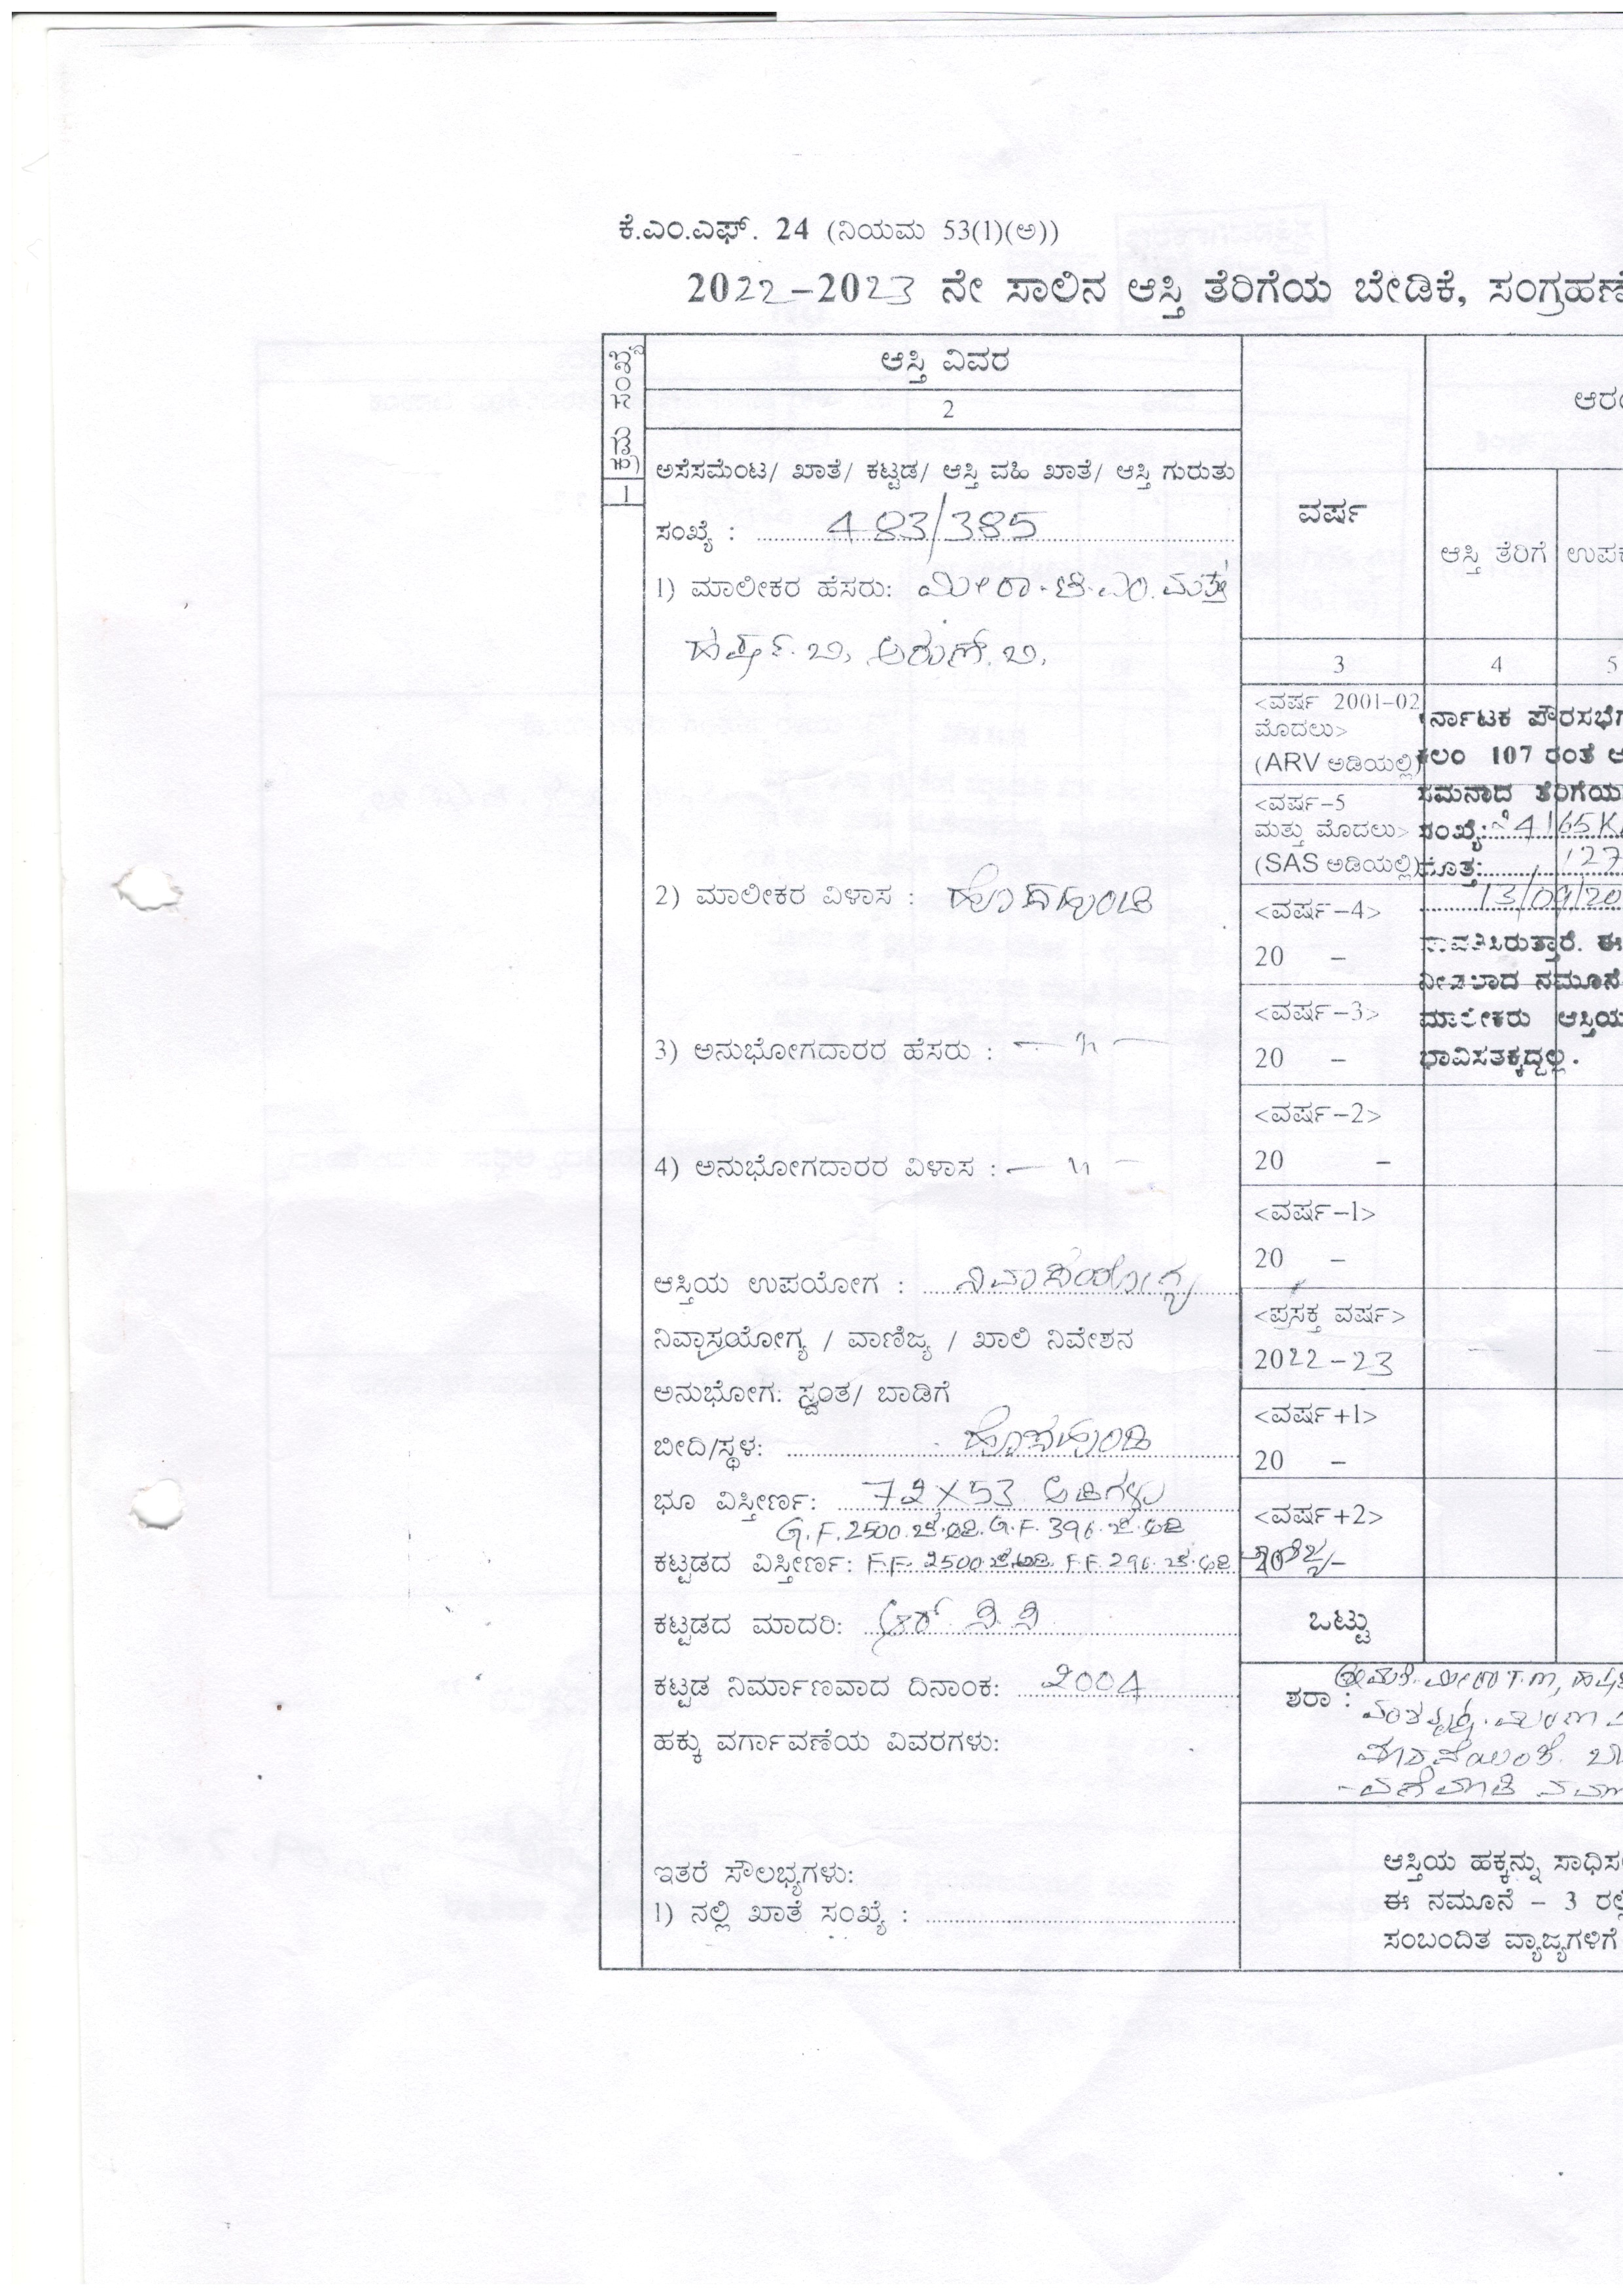 ಕೆ.ಎಂ.ಎಫ್. 24 (ನಿಯಮ 53(1)(ಅ))
2022-2023 ನೇ ಸಾಲಿನ ಆಸ್ತಿ ತೆರಿಗೆಯ ಬೇಡಿಕೆ, ಸಂಗ್ರಹಣೆ
ಕ್ರಮ ಸಂಖ್ಯೆ
1
ಆಸ್ತಿ ವಿವರ
2
ಅಸೆಸಮೆಂಟ/ ಖಾತೆ/ ಕಟ್ಟಡ/ ಆಸ್ತಿ ವಹಿ ಖಾತೆ/ ಆಸ್ತಿ ಗುರುತು
ಸಂಖ್ಯೆ : 483/385
1) ಮಾಲೀಕರ ಹೆಸರು: ಮೀರಾ.ಟಿ.ಎಂ. ಮತ್ತು
ಹರ್ಷ.ಬಿ, ಅರುಣ್.ಬಿ,
2) ಮಾಲೀಕರ ವಿಳಾಸ : ಹೊಸಹುಂಡಿ
3) ಅನುಭೋಗದಾರರ ಹೆಸರು : — " —
4) ಅನುಭೋಗದಾರರ ವಿಳಾಸ : — " —
ಆಸ್ತಿಯ ಉಪಯೋಗ : ನಿವಾಸಯೋಗ್ಯ
ನಿವಾಸಯೋಗ್ಯ / ವಾಣಿಜ್ಯ / ಖಾಲಿ ನಿವೇಶನ
ಅನುಭೋಗ: ಸ್ವಂತ/ ಬಾಡಿಗೆ
ಬೀದಿ/ಸ್ಥಳ: ಹೊಸಹುಂಡಿ
ಭೂ ವಿಸ್ತೀರ್ಣ: 72 X 53 ಅಡಿಗಳು
G.F. 2500.ಚ.ಅಡಿ. G.F. 396.ಚ.ಅಡಿ
ಕಟ್ಟಡದ ವಿಸ್ತೀರ್ಣ: F.F. 2500.ಚ.ಅಡಿ. F.F. 296.ಚ.ಅಡಿ
ಕಟ್ಟಡದ ಮಾದರಿ: ಆರ್.ಸಿ.ಸಿ
ಕಟ್ಟಡ ನಿರ್ಮಾಣವಾದ ದಿನಾಂಕ: 2004
ಹಕ್ಕು ವರ್ಗಾವಣೆಯ ವಿವರಗಳು:
ಇತರೆ ಸೌಲಭ್ಯಗಳು:
1) ನಲ್ಲಿ ಖಾತೆ ಸಂಖ್ಯೆ :
ವರ್ಷ
3
<ವರ್ಷ 2001-02
ಮೊದಲು>
(ARV ಅಡಿಯಲ್ಲಿ)
<ವರ್ಷ-5
ಮತ್ತು ಮೊದಲು>
(SAS ಅಡಿಯಲ್ಲಿ)
<ವರ್ಷ-4>
20 –
<ವರ್ಷ-3>
20 –
<ವರ್ಷ-2>
20 –
<ವರ್ಷ-1>
20 –
<ಪ್ರಸಕ್ತ ವರ್ಷ>
2022-23
<ವರ್ಷ+1>
20 –
<ವರ್ಷ+2>
20 –
ಒಟ್ಟು
ಆಸ್ತಿ ತೆರಿಗೆ
4
5
ರ್ನಾಟಕ ಪೌರಸಭೆಗ
ಕಲಂ 107 ರಂತೆ
ಸಮನಾದ ತೆರಿಗೆಯ
ಸಂಖ್ಯೆ: 4165
ಮೊತ್ತ: 127
13/09/20
ಪಾವತಿಸಿರುತ್ತಾರೆ. ಈ
ನೀಡಲಾದ ನಮೂನೆ
ಮಾಲೀಕರು ಆಸ್ತಿಯ
ಭಾವಿಸತಕ್ಕದ್ದಲ್ಲ.
ಶರಾ :
ಆಸ್ತಿಯ ಹಕ್ಕನ್ನು ಸಾಧಿಸ
ಈ ನಮೂನೆ – 3 ರಲ್ಲಿ
ಸಂಬಂದಿತ ವ್ಯಾಜ್ಯಗಳಿಗೆ